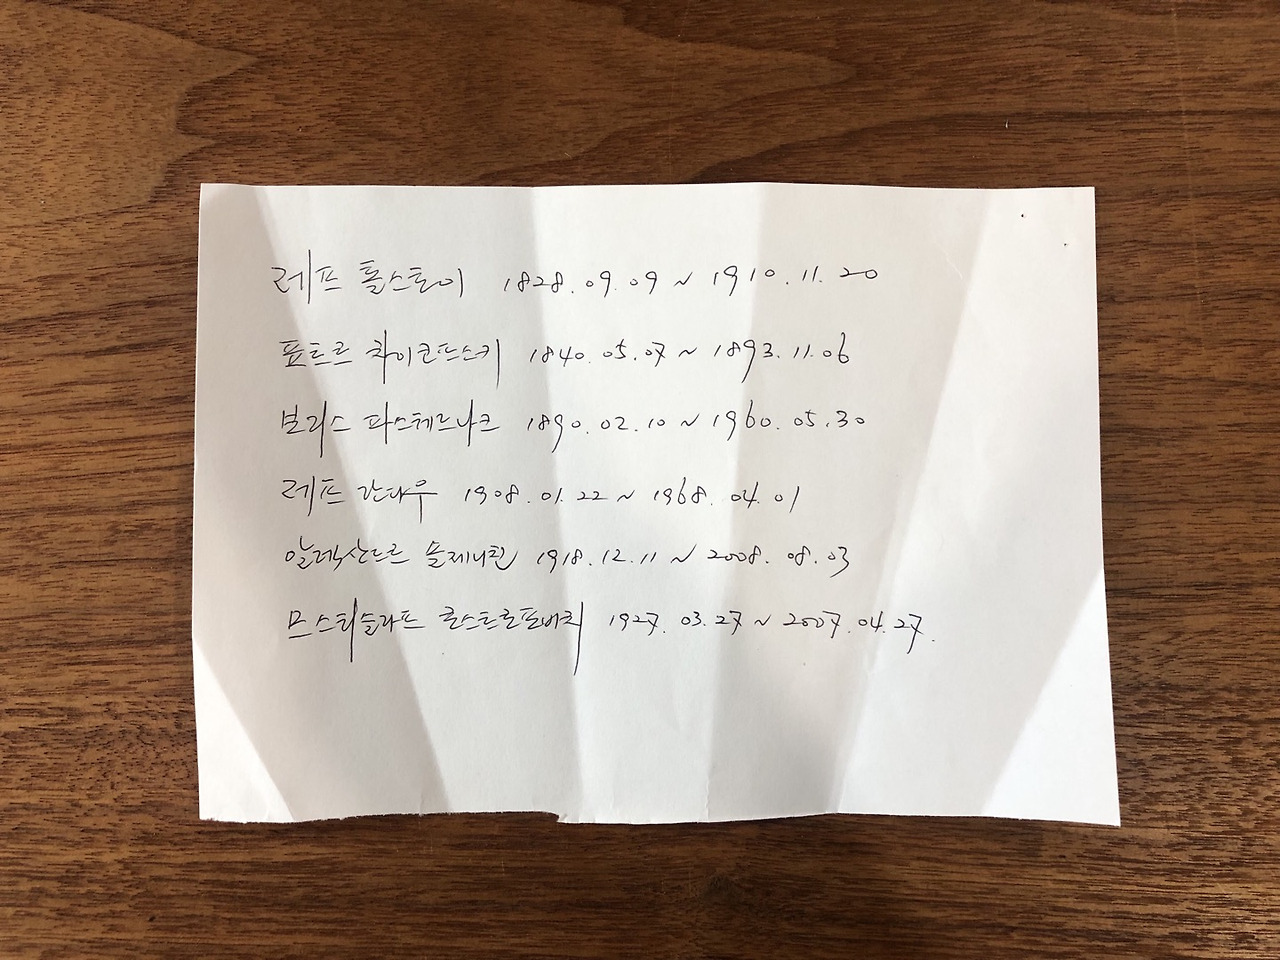 레프 톨스토이 1828.09.09 ~ 1910.11.20
표트르 차이코프스키 1840.05.07 ~ 1893.11.06
보리스 파스테르나크 1890.02.10 ~ 1960.05.30
레프 란다우 1908.01.22 ~ 1968.04.01
알렉산드르 솔제니친 1918.12.11 ~ 2008.08.03
므스티슬라프 로스트로포비치 1927.03.27 ~ 2007.04.27.